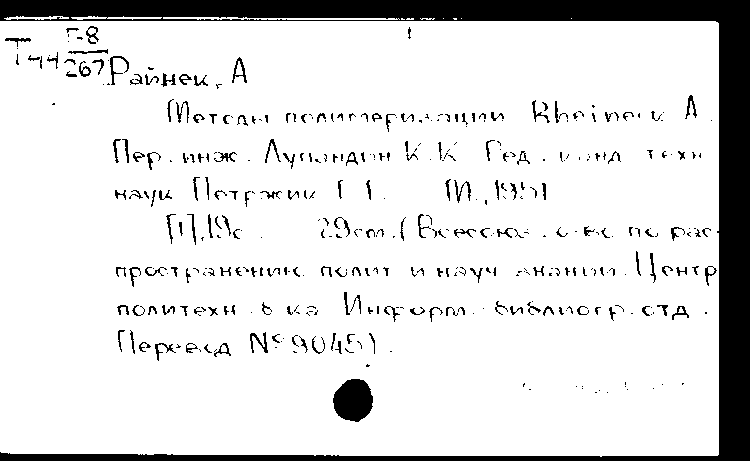 Т-44 Г-8
267
Райнек, А
Методы полимеризации Rheineck A.
Пер. инж. Лупандин К.К. Ред. канд. техн
наук Петржик Г.Г. М., 1951
[1], 19с. 29см. (Всесоюз. о-во по рас-
пространению полит и науч знаний. Центр
политехн. б-ка Информ.-библиогр. отд.
Перевод № 9045).